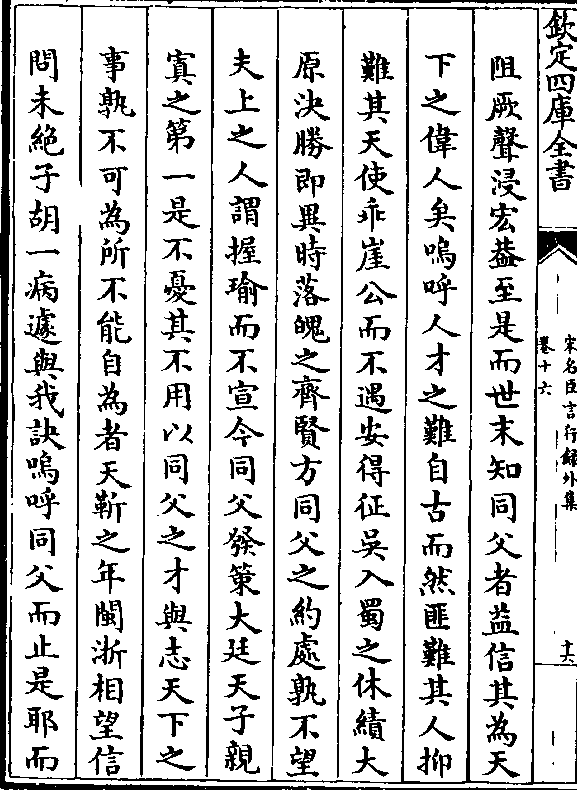 欽定四庫全書
宋名臣言行録外集
卷十六
十六
阻厥聲浸宏葢至是而世未知同父者益信其為天
下之偉人矣嗚呼人才之難自古而然匪難其人抑
難其天使乖崖公而不遇安得征吳入蜀之休績大
原決勝即異時落魄之齊賢方同父之約處孰不望
夫上之人謂握瑜而不宣今同父發策大廷天子親
寘之第一是不憂其不用以同父之才與志天下之
事孰不可為所不能自為者天靳之年閩浙相望信
問未絶子胡一病遽與我訣嗚呼同父而止是耶而